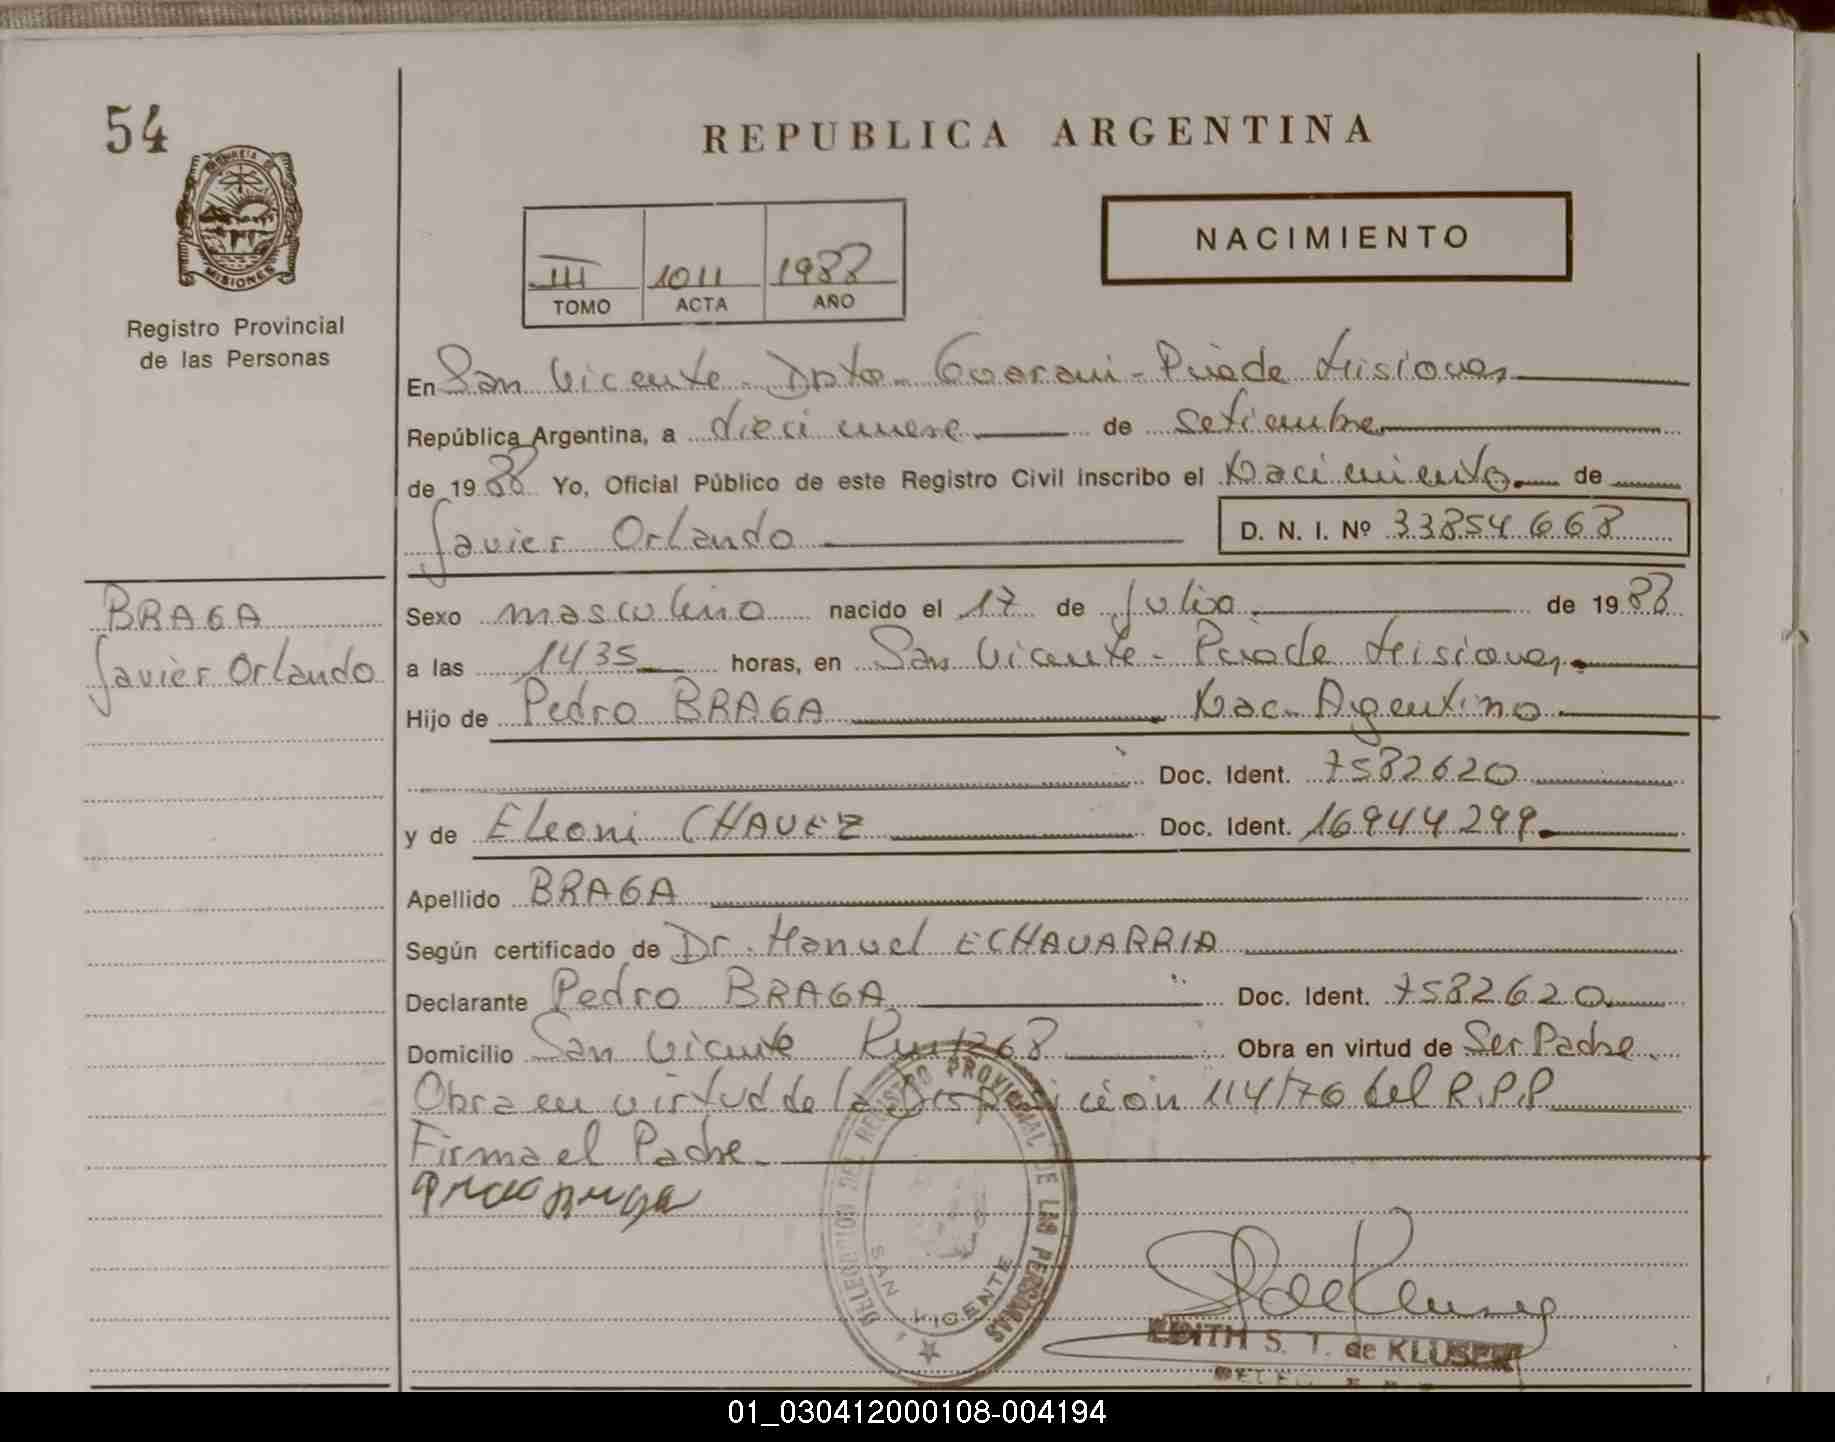 54
REPUBLICA ARGENTINA
MISIONES
Registro Provincial
de las Personas
III 1011 1988
TOMO ACTA AÑO
NACIMIENTO
En San Vicente - Dpto - Guarani - Pcia de Misiones
República Argentina, a dieci nueve de setiembre
de 1988 Yo, Oficial Público de este Registro Civil inscribo el Nacimiento de
Javier Orlando D. N. I. Nº 33854668
BRAGA
Javier Orlando
Sexo masculino nacido el 17 de Julio de 1988
a las 1435 horas, en San Vicente - Pcia de Misiones
Hijo de Pedro BRAGA Nac. Argentino
Doc. Ident. 7582620
y de Eleoni CHAVEZ Doc. Ident. 16944299
Apellido BRAGA
Según certificado de Dr. Manuel ECHAVARRIA
Declarante Pedro BRAGA Doc. Ident. 7582620
Domicilio San Vicente Km 1268 Obra en virtud de Ser Padre
Obra en virtud de la Disposición 114/70 del R.P.P
Firma el Padre
DELEGACION DEL REGISTRO PROVINCIAL DE LAS PERSONAS
SAN VICENTE
EDITH S. T. de KLUSENER
01_030412000108-004194